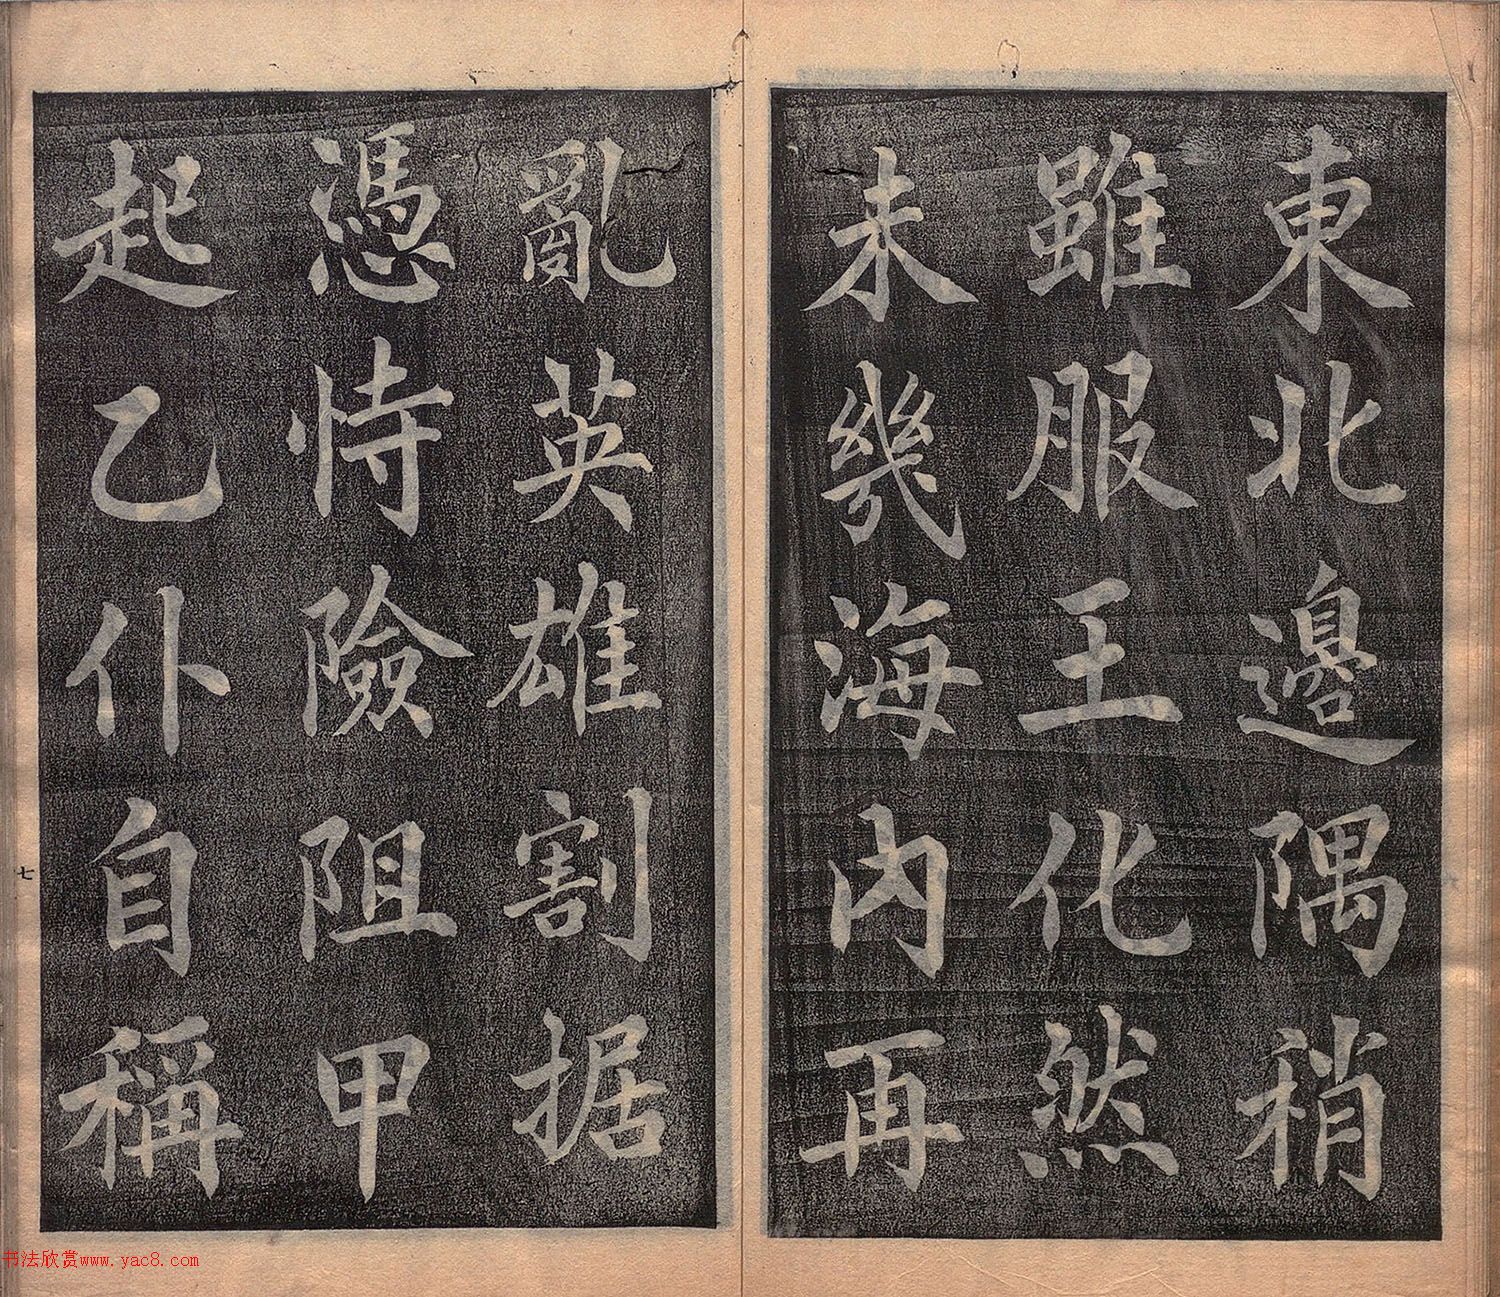 東北邊隅稍
雖服王化然
未幾海內再
亂英雄割据
憑恃險阻甲
起乙仆自稱
七
书法欣赏www.yac8.com